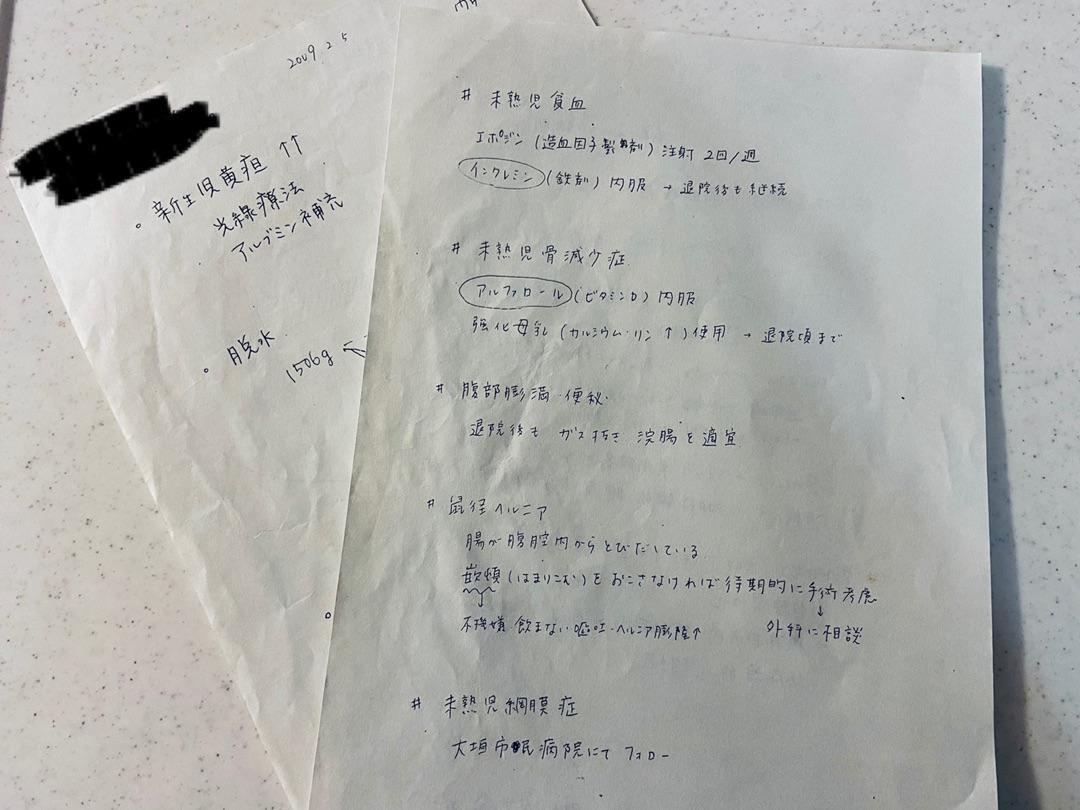 2009.2.5
・新生児黄疸 ↑↑
光線療法
アルブミン補充
・脱水
1506g ←
# 未熟児貧血
エポジン (造血因子製剤) 注射 2回/週
インクレミン (鉄剤) 内服 → 退院後も継続
# 未熟児骨減少症
アルファロール (ビタミンD) 内服
強化母乳 (カルシウム・リン ↑) 使用 → 退院頃まで
# 腹部膨満・便秘
退院後も ガス抜き 浣腸を適宜
# 鼠径ヘルニア
腸が腹腔内からとびだしている
嵌頓 (はまりこむ) をおこさなければ待期的に手術考慮
↓ ↓
不機嫌・飲まない・嘔吐・ヘルニア膨隆↑ 外科に相談
# 未熟児網膜症
大垣市民病院にて フォロー